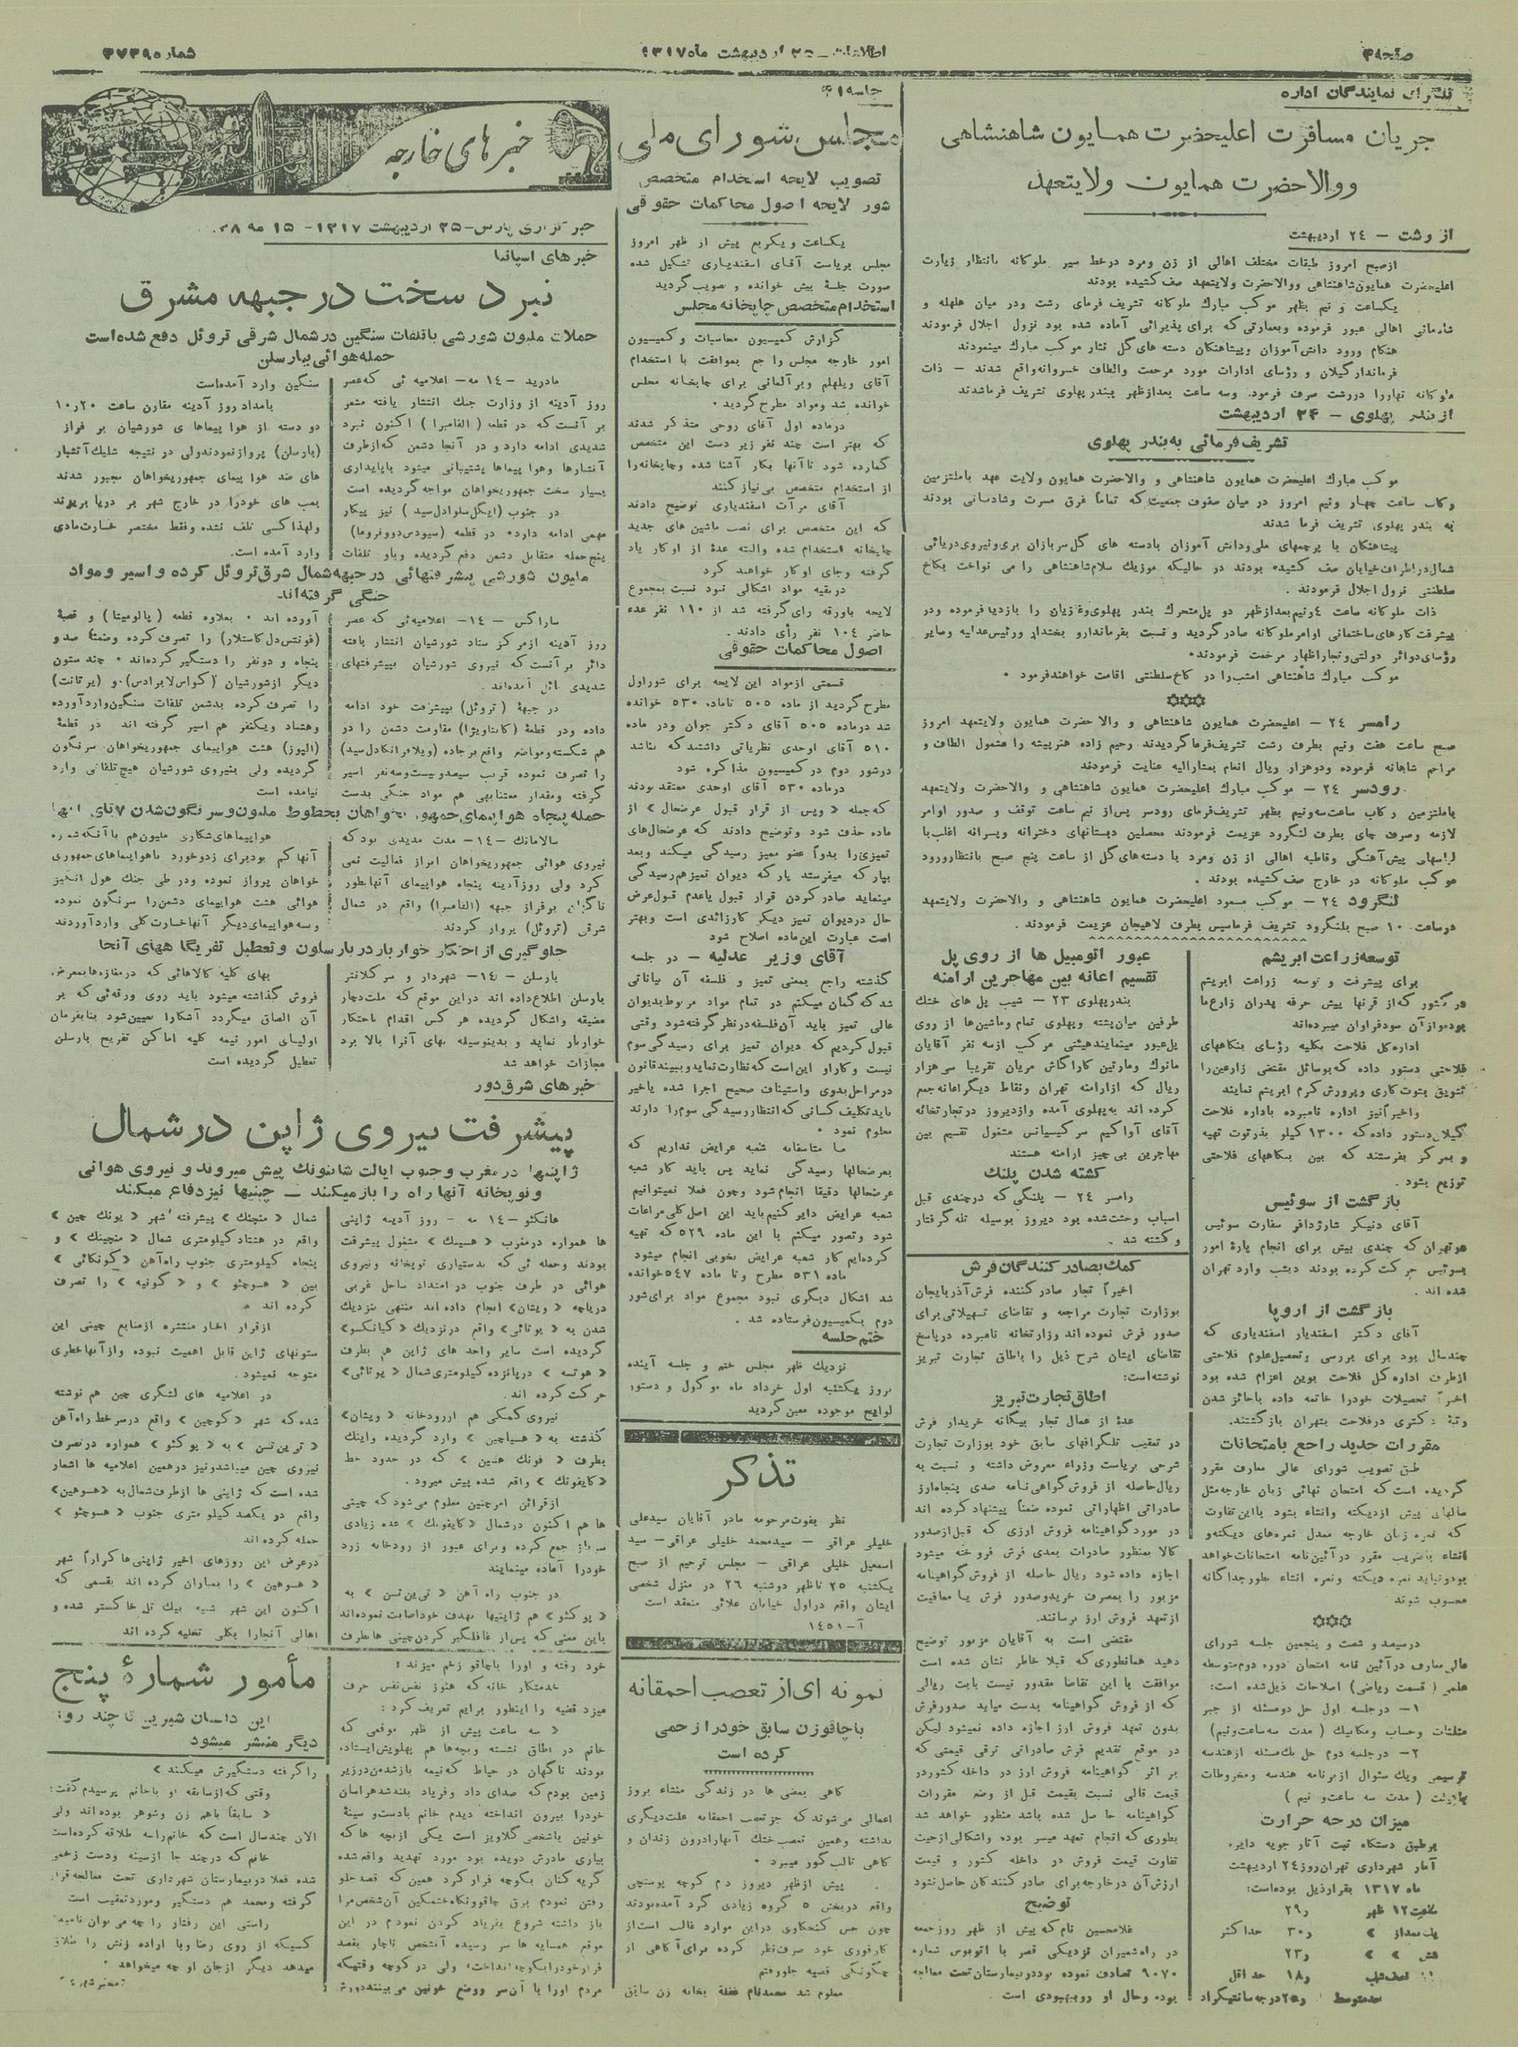 صفحه ۴
اطلاعات - ۲۵ اردیبهشت ماه ۱۳۱۷
شماره ۳۷۳۹
تلگراف نمایندگان اداره
جریان مسافرت اعلیحضرت همایون شاهنشاهی
ووالاحضرت همایون ولایتعهد
از رشت - ۲۴ اردیبهشت
ازصبح امروز طبقات مختلف اهالی از زن ومرد درخط سیر ملوکانه بانتظار زیارت
اعلیحضرت همایون شاهنشاهی ووالاحضرت ولایتعهد صف کشیده بودند
یکساعت و نیم بظهر موکب مبارک ملوکانه تشریف فرمای رشت ودر میان هلهله و
شادمانی اهالی عبور فرموده وبعمارتی که برای پذیرائی آماده شده بود نزول اجلال فرمودند
هنگام ورود دانش‌آموزان وپیشاهنگان دسته های گل نثار موکب مبارک مینمودند
فرماندار گیلان و رؤسای ادارات مورد مرحمت والطاف خسروانه واقع شدند - ذات
ملوکانه نهاررا دررشت صرف فرمود. وسه ساعت بعدازظهر ببندر پهلوی تشریف فرماشدند
از بندر پهلوی - ۲۴ اردیبهشت
تشریف فرمائی به بندر پهلوی
موکب مبارک اعلیحضرت همایون شاهنشاهی و والاحضرت همایون ولایت عهد باملتزمین
رکاب ساعت چهار ونیم امروز در میان صفوف جمعیت که تماماً غرق مسرت وشادمانی بودند
به بندر پهلوی تشریف فرما شدند
پیشاهنگان با پرچمهای ملی ودانش آموزان بادسته های گل سربازان بری ونیروی دریائی
شمال دراطراف خیابان صف کشیده بودند در حالیکه موزیک سلام شاهنشاهی را می نواخت بکاخ
سلطنتی نزول اجلال فرمودند.
ذات ملوکانه ساعت ۶ ونیم بعدازظهر دو پل متحرک بندر پهلوی وغازیان را بازدید فرموده ودر
پیشرفت کارهای ساختمانی اوامر ملوکانه صادر گردید و نسبت بفرماندار و بخشدار ورئیس عدلیه وسایر
رؤسای دوائر دولتی وتجار اظهار مرحمت فرمودند.
موکب مبارک شاهنشاهی امشب را در کاخ سلطنتی اقامت خواهند فرمود.
رامسر ۲۴ - اعلیحضرت همایون شاهنشاهی و والا حضرت همایون ولایتعهد امروز
صبح ساعت هفت ونیم بطرف رشت تشریف فرما گردیدند رحیم زاده هنرپیشه را مشمول الطاف و
مراحم شاهانه فرموده ودوهزار ریال انعام بمشارالیه عنایت فرمودند
رودسر ۲۴ - موکب مبارک اعلیحضرت همایون شاهنشاهی و والاحضرت ولایتعهد
باملتزمین رکاب ساعت سه ونیم بظهر تشریف فرمای رودسر پس از نیم ساعت توقف و صدور اوامر
لازمه وصرف چای بطرف لنگرود عزیمت فرمودند محصلین دبستانهای دخترانه وپسرانه اغلب با
لباسهای پیش آهنگی وقاطبه اهالی از زن ومرد با دسته‌های گل از ساعت پنج صبح بانتظار ورود
موکب ملوکانه در خارج صف کشیده بودند.
لنگرود ۲۴ - موکب مسعود اعلیحضرت همایون شاهنشاهی و والاحضرت ولایتعهد
درساعت ۱۰ صبح بلنگرود تشریف فرماسپس بطرف لاهیجان عزیمت فرمودند.
توسعه زراعت ابریشم
برای پیشرفت و توسعه زراعت ابریشم
در کشور که از قرنها پیش حرفه پدران زارع ما
بوده واز آن سود فراوان میبرده‌اند
اداره کل فلاحت بکلیه رؤسای بنگاههای
فلاحتی دستور داده که بوسائل مقتضی زارعین را
تشویق بتوت کاری وپرورش کرم ابریشم نمایند
واخیراً نیز اداره نامبرده باداره فلاحت
گیلان دستور داده که ۱۳۰۰ کیلو بذر توت تهیه
و بمرکز بفرستند که بین بنگاههای فلاحتی
توزیع بشود.
بازگشت از سوئیس
آقای دنیکر شارژدافر سفارت سوئیس
در تهران که چندی پیش برای انجام پارۀ امور
بسوئیس حرکت کرده بودند دیشب وارد تهران
شده اند.
بازگشت از اروپا
آقای دکتر اسفندیار اسفندیاری که
چندسال بود برای بررسی وتحصیل علوم فلاحتی
ازطرف اداره کل فلاحت ببوین اعزام شده بود
اخیراً تحصیلات خودرا خاتمه داده باحائز شدن
رتبۀ دکتری درفلاحت بتهران بازگشتند.
مقررات جدید راجع بامتحانات
طبق تصویب شورای عالی معارف مقرر
گردیده است که امتحان نهائی زبان خارجه مثل
سالهای پیش ازدیکته وانشاء بشود بااین تفاوت
که نمره زبان خارجه معدل نمره‌های دیکته و
انشاء باضریب مقرر درآئین نامه امتحانات خواهد
بود ونباید نمره دیکته ونمره انشاء بطور جداگانه
محسوب شوند
درسیصد و شصت و پنجمین جلسه شورای
عالی معارف درآئین نامه امتحان دوره دوم متوسطه
علمی (قسمت ریاضی) اصلاحات ذیل شده است:
۱- درجلسه اول حل دومسئله از جبر
مثلثات وحساب ومکانیک (مدت سه ساعت ونیم)
۲- درجلسه دوم حل یک مسئله ازهندسه
ترسیمی ویک سئوال ازبرنامه هندسه ومخروطات
(مدت سه ساعت و نیم)
میزان درجه حرارت
برطبق دستگاه ثبت آثار جویه دایره
آمار شهرداری تهران روز ۲۴ اردیبهشت
ماه ۱۳۱۷ بقرار ذیل بوده است:
ساعت ۱۲ ظهر ۲۹
حداکثر ۳۰
شش » » ۲۳
نصف شب ۱۸ حداقل
حدمتوسط درجه سانتیگراد
عبور اتومبیل ها از روی پل
تقسیم اعانه بین مهاجرین ارامنه
بندرپهلوی ۲۳ - شیب پل های خشک
طرفین میان‌پشته وپهلوی تمام وماشین‌ها از روی
پل عبور مینمایند هیئتی مرکب ازسه نفر آقایان
مانوک ومارتین کاراگاش مریان تقریبا سی هزار
ریال که ازارامنه تهران ونقاط دیگر اعانه جمع
کرده اند به پهلوی آمده وازدیروز درتجارتخانه
آقای آواکیم سرکیسیانس مشغول تقسیم بین
مهاجرین بی چیز ارامنه هستند
کشته شدن پلنگ
رامسر ۲۴ - پلنگی که درچندی قبل
اسباب وحشت شده بود دیروز بوسیله تله گرفتار
و کشته شد.
کمک بصادرکنندگان فرش
اخیراً تجار صادر کننده فرش آذربایجان
بوزارت تجارت مراجعه و تقاضای تسهیلاتی برای
صدور فرش نموده اند وزارتخانه نامبرده درپاسخ
تقاضای ایشان شرح ذیل را باطاق تجارت تبریز
نوشته است:
اطاق تجارت تبریز
عدۀ از عمال تجار بیگانه خریدار فرش
در تعقیب تلگرافهای سابق خود بوزارت تجارت
شرحی بریاست وزراء معروض داشته و نسبت به
ریال حاصله از فروش گواهی نامه صدی پنجاه ارز
صادراتی اظهاراتی نموده ضمناً پیشنهاد کرده اند
در مورد گواهینامه فروش ارزی که قبل ازصدور
کالا بمنظور صادرات بعدی فرش فروخته میشود
اجازه داده شود ریال حاصله از فروش گواهینامه
مزبور را بمصرف خرید وصدور فرش یا معافیت
ازتعهد فروش ارز برسانند.
مقتضی است به آقایان مزبور توضیح
دهید همانطوری که قبلا خاطر نشان شده است
موافقت با این تقاضا مقدور نیست بابت ریالی
که از فروش گواهینامه بدست میاید صدور فرش
بدون تعهد فروش ارز اجازه داده نمیشود لیکن
در موقع تقدیم فرش صادراتی ترقی قیمتی که
بر اثر گواهینامه فروش ارز در داخله کشور در
قیمت قالی نسبت بقیمت قبل از وضع مقررات
گواهینامه حاصل شده باشد منظور خواهد شد
بطوری که انجام تعهد میسر بوده واشکالی ازحیث
تفاوت قیمت فروش در داخله کشور و قیمت
ارزش آن درخارجه برای صادر کنندگان حاصل نشود
توضیح
غلامحسین نام که پیش از ظهر روز جمعه
در راه شمیران نزدیکی قصر با اتوبوس شماره
۹۰۷۰ تصادف نموده بود در بیمارستان تحت معالجه
بوده وحال او روببهبودی است.
جلسه ۴۱
مجلس شورای ملی
تصویب لایحه استخدام متخصص
شور لایحه اصول محاکمات حقوقی
یکساعت ویکربع پیش از ظهر امروز
مجلس بریاست آقای اسفندیاری تشکیل شده
صورت جلسۀ پیش خوانده و تصویب گردید
استخدام متخصص چاپخانه مجلس
گزارش کمیسیون محاسبات و کمیسیون
امور خارجه مجلس راجع بموافقت با استخدام
آقای ویلهلم وبر آلمانی برای چاپخانه مجلس
خوانده شد ومواد مطرح گردید.
درماده اول آقای روحی متذکر شدند
که بهتر است چند نفر زیر دست این متخصص
گمارده شود تا آنها بکار آشنا شده وچاپخانه را
از استخدام متخصص بی نیاز کنند
آقای مرآت اسفندیاری توضیح دادند
که این متخصص برای نصب ماشین های جدید
چاپخانه استخدام شده والبته عدۀ از او کار یاد
گرفته وجای او کار خواهند کرد
دربقیه مواد اشکالی نبود نسبت بمجموع
لایحه باورقه رای گرفته شد از ۱۱۰ نفر عده
حاضر ۱۰۴ نفر رأی دادند.
اصول محاکمات حقوقی
قسمتی ازمواد این لایحه برای شور اول
مطرح گردید از ماده ۵۰۵ تاماده ۵۳۰ خوانده
شد درماده ۵۰۵ آقای دکتر جوان ودر ماده
۵۱۰ آقای اوحدی نظریاتی داشتند که بنا شد
درشور دوم در کمیسیون مذاکره شود
درماده ۵۳۰ آقای اوحدی معتقد بودند
که جمله «وپس از قرار قبول عرضحال» از
ماده حذف شود وتوضیح دادند که عرضحال‌های
تمیزی را بدواً عضو ممیز رسیدگی میکند وبعد
بپارکه میفرستد پارکه دیوان تمیز هم رسیدگی
مینماید صادر کردن قرار قبول یاعدم قبول عرض
حال دردیوان تمیز دیگر کارزائدی است وبهتر
است عبارت این ماده اصلاح شود
آقای وزیر عدلیه - در جلسه
گذشته راجع بمعنی تمیز و فلسفه آن بیاناتی
شد که گمان میکنم در تمام مواد مربوط بدیوان
عالی تمیز باید آن فلسفه درنظر گرفته شود وقتی
قبول کردیم که دیوان تمیز برای رسیدگی سوم
نیست وکار او این است که نظارت نماید وببیند قانون
درمراحل بدوی واستیناف صحیح اجرا شده یاخیر
باید تکلیف کسانی که انتظار رسیدگی سوم را دارند
معلوم نمود.
ما متاسفانه شعبه عرایض نداریم که
بعرضحالها رسیدگی نماید پس باید کار شعبه
عرضحالها دقیقا انجام شود وچون فعلا نمیتوانیم
شعبه عرایض دایر کنیم باید این اصل کلی مراعات
شود وتصور میکنم با این ماده ۵۲۹ که تهیه
کرده‌ایم کار شعبه عرایض بخوبی انجام میشود
ماده ۵۳۱ مطرح وتا ماده ۵۴۷ خوانده
شد اشکال دیگری نبود مجموع مواد برای شور
دوم بکمیسیون فرستاده شد.
ختم جلسه
نزدیک ظهر مجلس ختم و جلسه آینده
بروز یکشنبه اول خرداد ماه موکول و دستور
لوایح موجوده معین گردید
تذکر
نظر بفوت مرحومه مادر آقایان سیدعلی
خلیلی عراقی - سید محمد خلیلی عراقی - سید
اسمعیل خلیلی عراقی - مجلس ترحیم از صبح
یکشنبه ۲۵ تاظهر دوشنبه ۲۶ در منزل شخصی
ایشان واقع دراول خیابان علائی منعقد است
آ-۱۴۵۱
نمونه ای از تعصب احمقانه
باچاقو زن سابق خودرا زخمی
کرده است
گاهی بعضی ها در زندگی منشاء بروز
اعمالی می‌شوند که جز تعصب احمقانه علت دیگری
نداشته وهمین تعصب خشک آنهارا درون زندان و
گاهی تالب گور میبرد.
پیش ازظهر دیروز دم کوچه پوستچی
واقع دربخش ۵ گروه زیادی گرد آمده بودند
چون حس کنجکاوی دراین موارد غالب است از
کارفوری خود صرف نظر کرده برای آگاهی از
چگونگی قضیه جلو رفتم
معلوم شد محمد نام بخانه زن سابق
خبرهای خارجه
خبرگزاری پارس - ۲۵ اردیبهشت ۱۳۱۷ - ۱۵ مه ۳۸
خبرهای اسپانیا
نبرد سخت در جبهه مشرق
حملات ملیون شورشی باتلفات سنگین درشمال شرقی تروئل دفع شده است
حمله هوائی ببارسلن
مادرید - ۱۴ مه - اعلامیه ئی که عصر
روز آدینه از وزارت جنگ انتشار یافته مشعر
بر آنست که در قطعه (القامبرا) اکنون نبرد
شدیدی ادامه دارد و در آنجا دشمن که ازطرف
آتشبارها وهوا پیماها پشتیبانی میشود باپایداری
بسیار سخت جمهوریخواهان مواجه گردیده است
در جنوب (ایگل سلوادل سید) نیز پیکار
مهمی ادامه دارد. در قطعه
پنج حمله متقابل دشمن دفع گردیده وباو تلفات
سنگین وارد آمده است
بامداد روز آدینه مقارن ساعت ۱۰ر۲۰
دو دسته از هوا پیماهای شورشیان بر فراز
(بارسلن) پرواز نمودند ولی در نتیجه شلیک آتشبار
های ضد هوا پیمای جمهوریخواهان مجبور شدند
بمب های خودرا در خارج شهر بر دریا بریزند
ولهذا کسی تلف نشده وفقط مختصر خسارت مادی
وارد آمده است.
ملیون شورشی پیشرفتهائی در جبهه شمال شرق تروئل کرده و اسیر ومواد
جنگی گرفته‌اند
ساراگس - ۱۴ - اعلامیه‌ئی که عصر
روز آدینه ازمرکز ستاد شورشیان انتشار یافته
دائر بر آنست که نیروی شورشیان بپیشرفتهای
شدیدی نائل آمده‌اند.
در جبهۀ (تروئل) بپیشرفت خود ادامه
داده ودر قطعۀ مقاومت دشمن را در
هم شکسته ومواضع واقع برجاده (ویلافرانکادل سید)
را تصرف نموده قریب سیصد وبیست وسه نفر اسیر
گرفته ومقدار معتنابهی هم مواد جنگی بدست
آورده اند. بعلاوه قطعه (پالومیتا) و قصبۀ
(فونتس دل کاستلار) را تصرف کرده وضمناً صد و
پنجاه و دونفر را دستگیر کرده‌اند. چند ستون
دیگر ازشورشیان
را تصرف کرده بدشمن تلفات سنگین وارد آورده
وهشتاد ویکنفر هم اسیر گرفته اند در قطعۀ
هشت هواپیمای جمهوریخواهان سرنگون
گردیده ولی بنیروی شورشیان هیچ تلفاتی وارد
نیامده است
حمله پنجاه هواپیمای جمهوریخواهان بخطوط ملیون وسرنگون شدن ۷ تای آنها
سالامانک - ۱۴ - مدت مدیدی بود که
نیروی هوائی جمهوریخواهان ابراز فعالیت نمی
کرد ولی روز آدینه پنجاه هواپیمای آنها بطور
ناگهانی بر فراز جبهه (القامبرا) واقع در شمال
شرقی (تروئل) پرواز کردند
هواپیماهای شکاری ملیون هم باآنکه شماره
آنها کم بود برای زدوخورد باهواپیماهای جمهوری
خواهان پرواز نموده ودر طی جنگ هول انگیز
هوائی هشت هواپیمای دشمن را سرنگون نموده
وسه هواپیمای دیگر آنها خسارت کلی وارد آوردند
جلوگیری از احتکار خواربار در بارسلون وتعطیل تفریگاه های آنجا
بارسلن - ۱۴ - شهردار و سر کلانتر
بارسلن اطلاع داده اند دراین موقع که ملت دچار
مضیقه واشکال گردیده هر کس اقدام باحتکار
خواربار نماید و بدینوسیله بهای آنرا بالا برد
مجازات خواهد شد
بهای کلیه کالاهائی که درمغازه ها بمعرض
فروش گذاشته میشود باید روی ورقه‌ئی که بر
آن الصاق میگردد آشکارا تعیین شود بنابفرمان
اولیای امور نیمه کلیه اماکن تفریح بارسلن
تعطیل گردیده است
خبرهای شرق دور
پیشرفت نیروی ژاپن در شمال
ژاپنیها در مغرب وجنوب ایالت شانتونگ پیش میروند و نیروی هوائی
وتوپخانه آنها راه را باز میکنند - چینیها نیز دفاع میکنند
هانکئو - ۱۴ مه - روز آدینه ژاپنی
ها همواره درمغرب «هسینگ» مشغول پیشرفت
بودند وحمله ئی که بدستیاری توپخانه ونیروی
هوائی در طرف جنوب در امتداد ساحل غربی
دریاچه «ویشان» انجام داده اند منتهی بنزدیک
شدن به «یوتائی» واقع درنزدیک «کیانکسو»
گردیده است سایر واحد های ژاپن هم بطرف
«هوتسه» درپانزده کیلومتری شمال «یوتائی»
حرکت کرده اند.
نیروی کمکی هم ازرودخانه «ویشان»
گذشته به «هسیاچین» وارد گردیده واینک
بطرف «فونگ هسین» که در حدود خط
«کایفونگ» واقع شده پیش میرود.
ازقرائن امر چنین معلوم می‌شود که چینی
ها هم اکنون درشمال «کایفونگ» عده زیادی
سرباز جمع کرده وبرای عبور از رودخانه زرد
خودرا آماده مینمایند
در جنوب راه آهن «تی ین تسن» به
«پوکئو» هم ژاپنیها بهدف خود اصابت نموده اند
باین معنی که پس از غافلگیر کردن چینی ها طرف
شمال «منچنگ» پیشرفته شهر «یونگ چین»
واقع در هشتاد کیلومتری شمال «منچینگ» و
پنجاه کیلومتری جنوب راه آهن «کونگائی»
بین «هسوچئو» و «کوئیه» را تصرف
کرده اند.
ازقرار اخبار منتشره ازمنابع چینی این
ستونهای ژاپن قابل اهمیت نبوده وازآنها خطری
متوجه نمیشود.
در اعلامیه های لشگری چین هم نوشته
شده که شهر «کوچین» واقع درسر خط راه آهن
«تی‌ین تسن» به «پوکئو» همواره درتصرف
نیروی چین میباشد ونیز درهمین اعلامیه ها اشعار
شده است که ژاپنی ها ازطرف شمال به «هسوهین»
واقع در یکصد کیلومتری جنوب «هسوچئو»
حمله کرده اند
درعرض این روزهای اخیر ژاپنی ها کراراً شهر
«هسوهین» را بمباران کرده اند بقسمی که
اکنون این شهر شبیه بیک تل خاکستر شده و
اهالی آنجارا بکلی تخلیه کرده اند
خود رفته و اورا باچاقو زخم میزند!
خدمتکار خانه که هنوز نفس نفس حرف
میزد قضیه را اینطور برایم تعریف کرد:
« سه ساعت پیش از ظهر موقعی که
خانم در اطاق نشسته وبچه‌ها هم پهلویش ایستاده
بودند ناگهان در حیاط که نیمه باز شد من درزیر
زمین بودم که صدای داد وفریاد بلند شد هراسان
خودرا بیرون انداخته دیدم خانم بادست وسینۀ
خونین باشخصی گلاویز است یکی ازبچه ها که
بیاری مادرش دویده بود مورد تهدید واقع شده
گریه کنان بکوچه فرار کرد همین که قصد جلو
رفتن نمودم برق چاقو ونگاه خشمگین آن شخص مرا
باز داشته شروع بفریاد کردن نمودم در این
موقع همسایه ها سر رسیده آن شخص ناچار بقصد
فرار خودرا بکوچه انداخت ولی در کوچه وقتیکه
مردم اورا با آن سر ووضع خونین می بینند دورش
مأمور شمارۀ پنج
این داستان شیرین تا چند روز
دیگر منتشر میشود
را گرفته دستگیرش میکنند»
وقتی که ازسابقه او باخانم پرسیدم گفت:
« سابقاً باهم زن وشوهر بوده اند ولی
الان چندسال است که خانم راسه طلاقه کرده است
خانم که درچند جا ازسینه ودست زخمی
شده فعلا دربیمارستان شهرداری تحت معالجه قرار
گرفته ومحمد هم دستگیر ومورد تعقیب است
راستی این رفتار را چه می توان نامید؟
کسیکه از روی رضا وبا اراده زنش را طلاق
میدهد دیگر ازجان او چه میخواهد؟